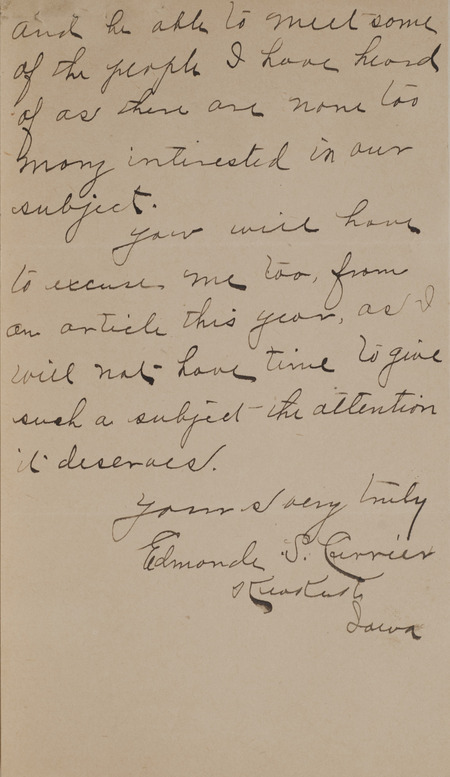 and be able to meet some
of the people I have heard
of as there are none too
many interested in our
subject.
You will have
to excuse me too, from
an article this year, as I
will not have time to give
such a subject the attention
it deserves.
Yours very truly
Edmonde S. Currier
Keokuk
Iowa